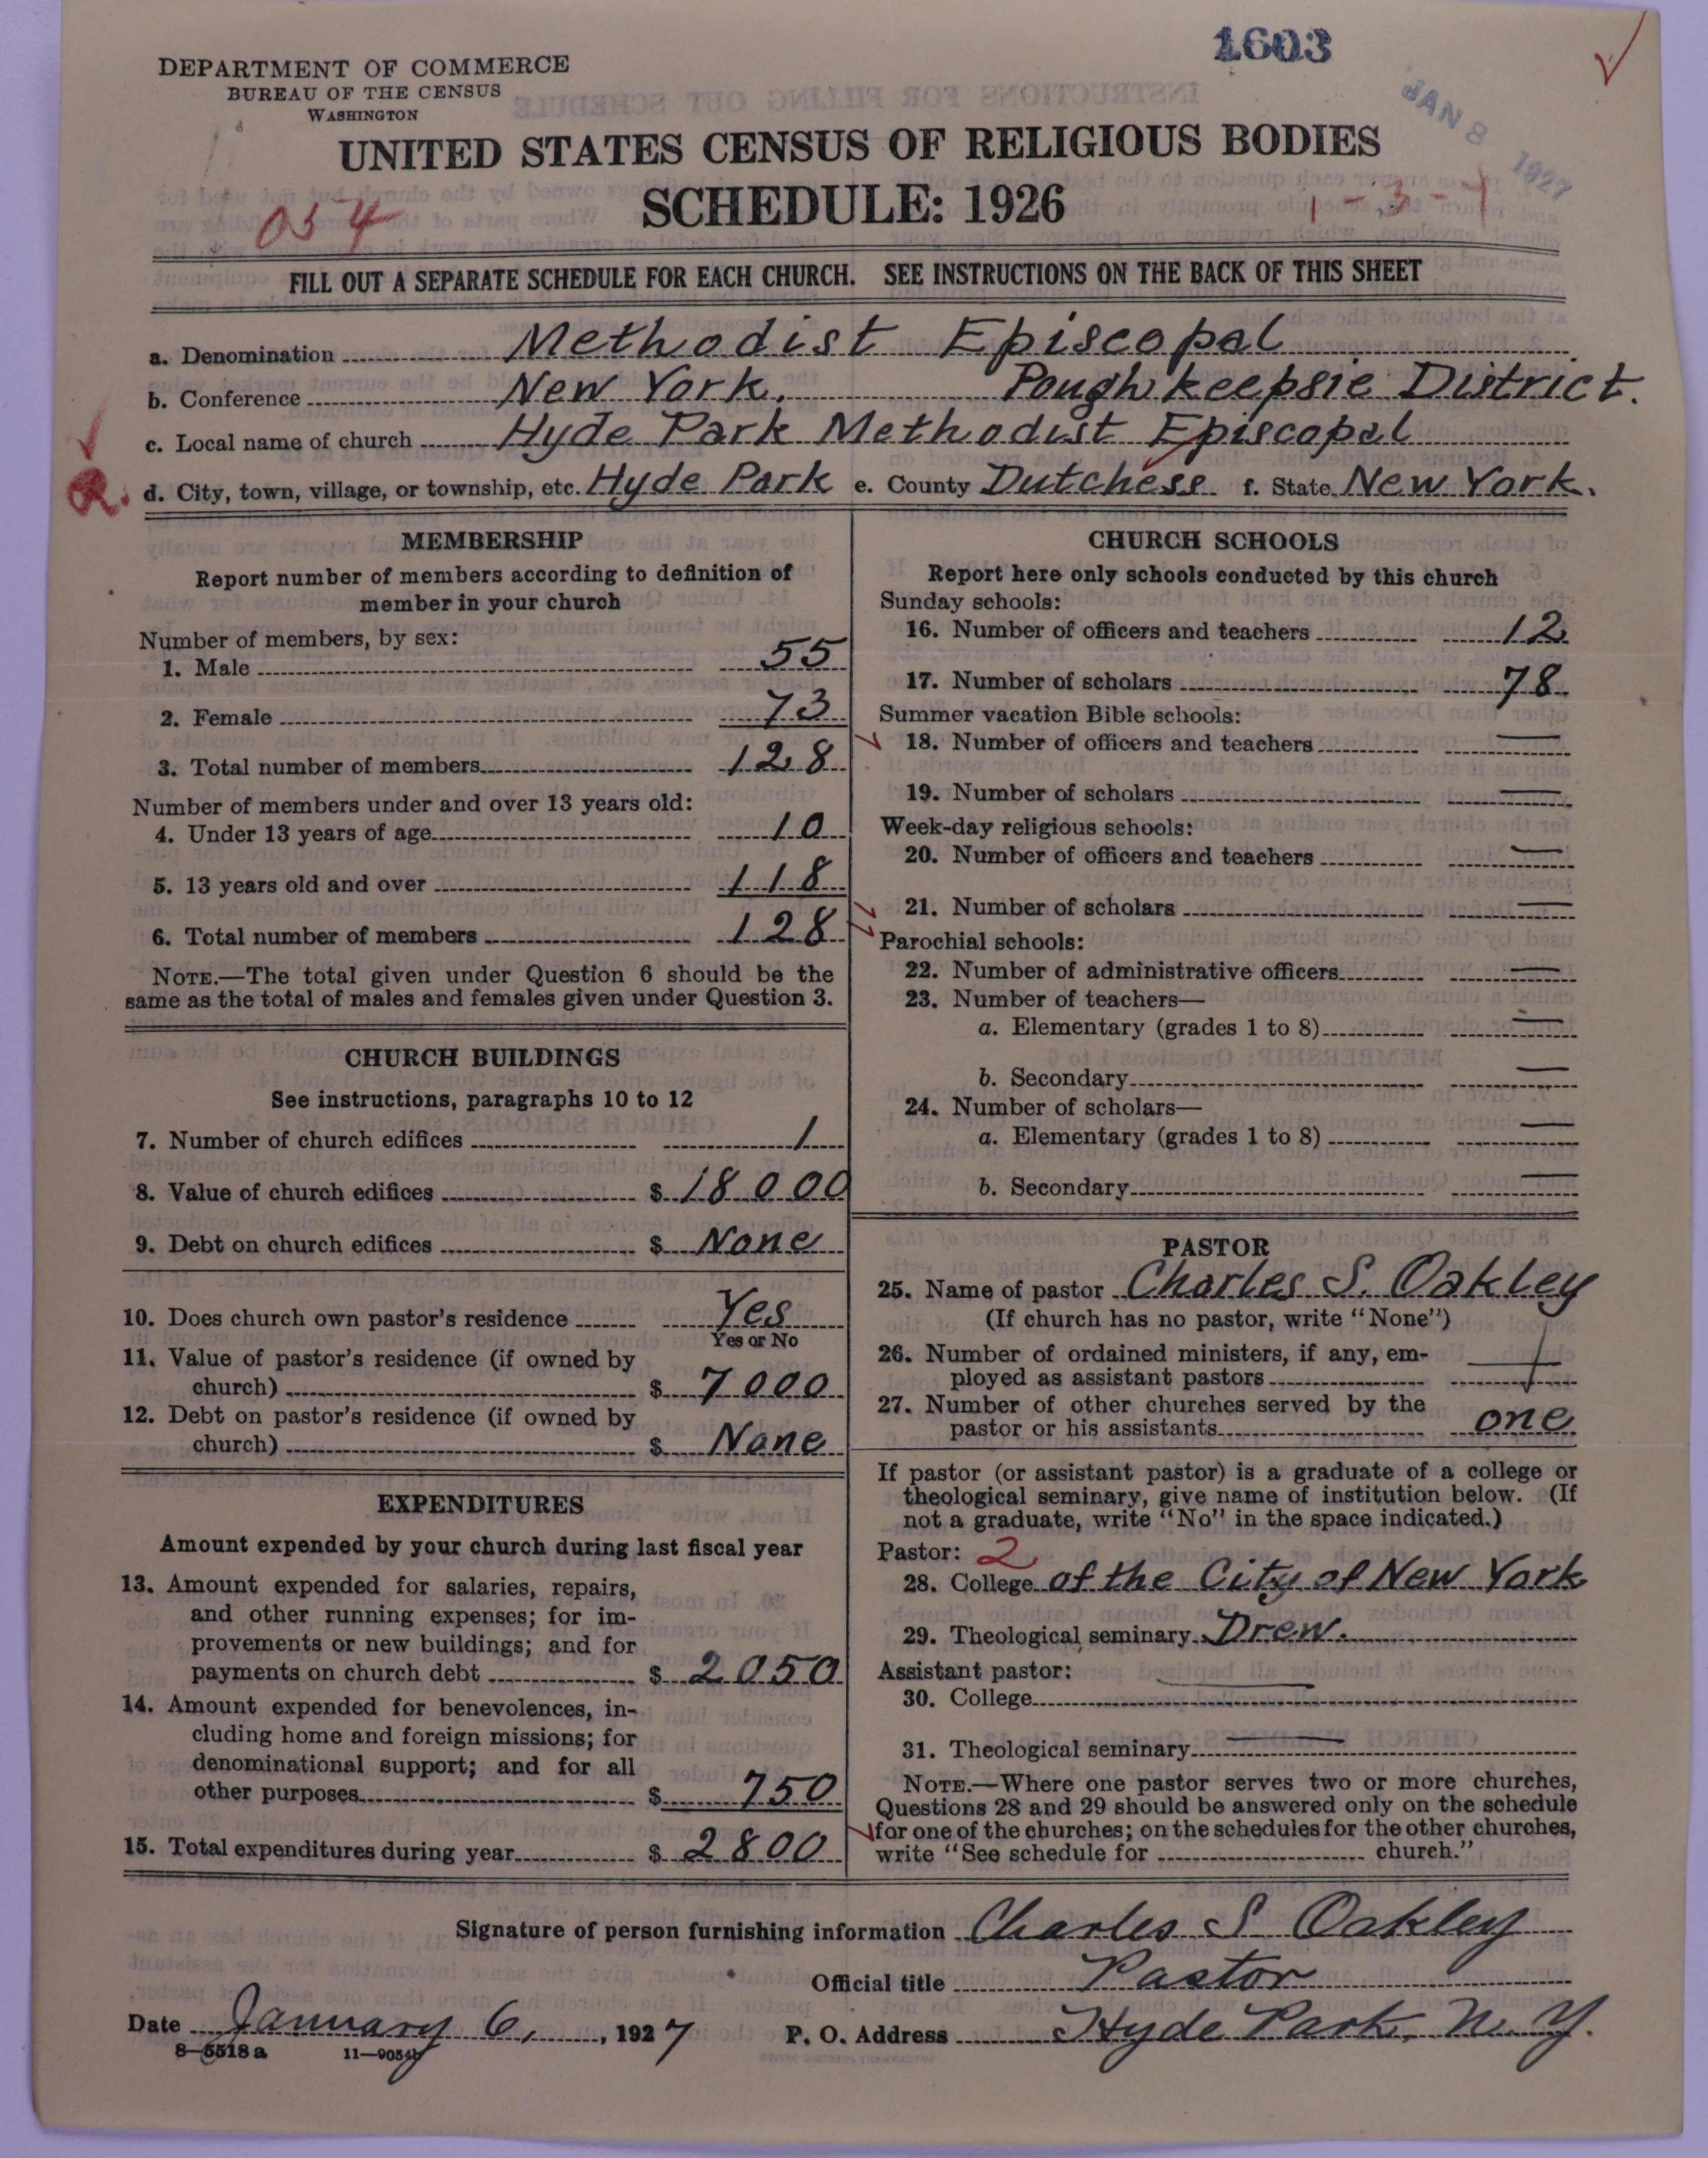 1603
DEPARTMENT OF COMMERCE
BUREAU OF THE CENSUS
WASHINGTON
JAN 8 1927
UNITED STATES CENSUS OF RELIGIOUS BODIES
SCHEDULE: 1926
054
1-3-1
FILL OUT A SEPARATE SCHEDULE FOR EACH CHURCH. SEE INSTRUCTIONS ON THE BACK OF THIS SHEET
a. Denomination Methodist Episcopal
b. Conference New York, Poughkeepsie District.
c. Local name of church Hyde Park Methodist Episcopal
R. d. City, town, village, or township, etc. Hyde Park e. County Dutchess f. State New York.
MEMBERSHIP
Report number of members according to definition of
member in your church
Number of members, by sex:
1. Male 55
2. Female 73
3. Total number of members 128
Number of members under and over 13 years old:
4. Under 13 years of age 10
5. 13 years old and over 118
6. Total number of members 128
NOTE.—The total given under Question 6 should be the
same as the total of males and females given under Question 3.
CHURCH BUILDINGS
See instructions, paragraphs 10 to 12
7. Number of church edifices 1
8. Value of church edifices $ 18000
9. Debt on church edifices $ None
10. Does church own pastor's residence Yes
Yes or No
11. Value of pastor's residence (if owned by
church) $ 7000
12. Debt on pastor's residence (if owned by
church) $ None
EXPENDITURES
Amount expended by your church during last fiscal year
13. Amount expended for salaries, repairs,
and other running expenses; for im-
provements or new buildings; and for
payments on church debt $ 2050
14. Amount expended for benevolences, in-
cluding home and foreign missions; for
denominational support; and for all
other purposes $ 750
15. Total expenditures during year $ 2800
CHURCH SCHOOLS
Report here only schools conducted by this church
Sunday schools:
16. Number of officers and teachers 12
17. Number of scholars 78
Summer vacation Bible schools:
18. Number of officers and teachers —
19. Number of scholars —
Week-day religious schools:
20. Number of officers and teachers —
21. Number of scholars —
Parochial schools:
22. Number of administrative officers —
23. Number of teachers—
a. Elementary (grades 1 to 8) —
b. Secondary —
24. Number of scholars—
a. Elementary (grades 1 to 8) —
b. Secondary —
PASTOR
25. Name of pastor Charles S. Oakley
(If church has no pastor, write "None")
26. Number of ordained ministers, if any, em-
ployed as assistant pastors
27. Number of other churches served by the
pastor or his assistants one
If pastor (or assistant pastor) is a graduate of a college or
theological seminary, give name of institution below. (If
not a graduate, write "No" in the space indicated.)
Pastor: 2
28. College of the City of New York
29. Theological seminary Drew.
Assistant pastor:
30. College —
31. Theological seminary —
NOTE.—Where one pastor serves two or more churches,
Questions 28 and 29 should be answered only on the schedule
for one of the churches; on the schedules for the other churches,
write "See schedule for church."
Signature of person furnishing information Charles S Oakley
Official title Pastor
Date January 6, , 1927 P. O. Address Hyde Park, N. Y.
8—5518 a 11—9054b